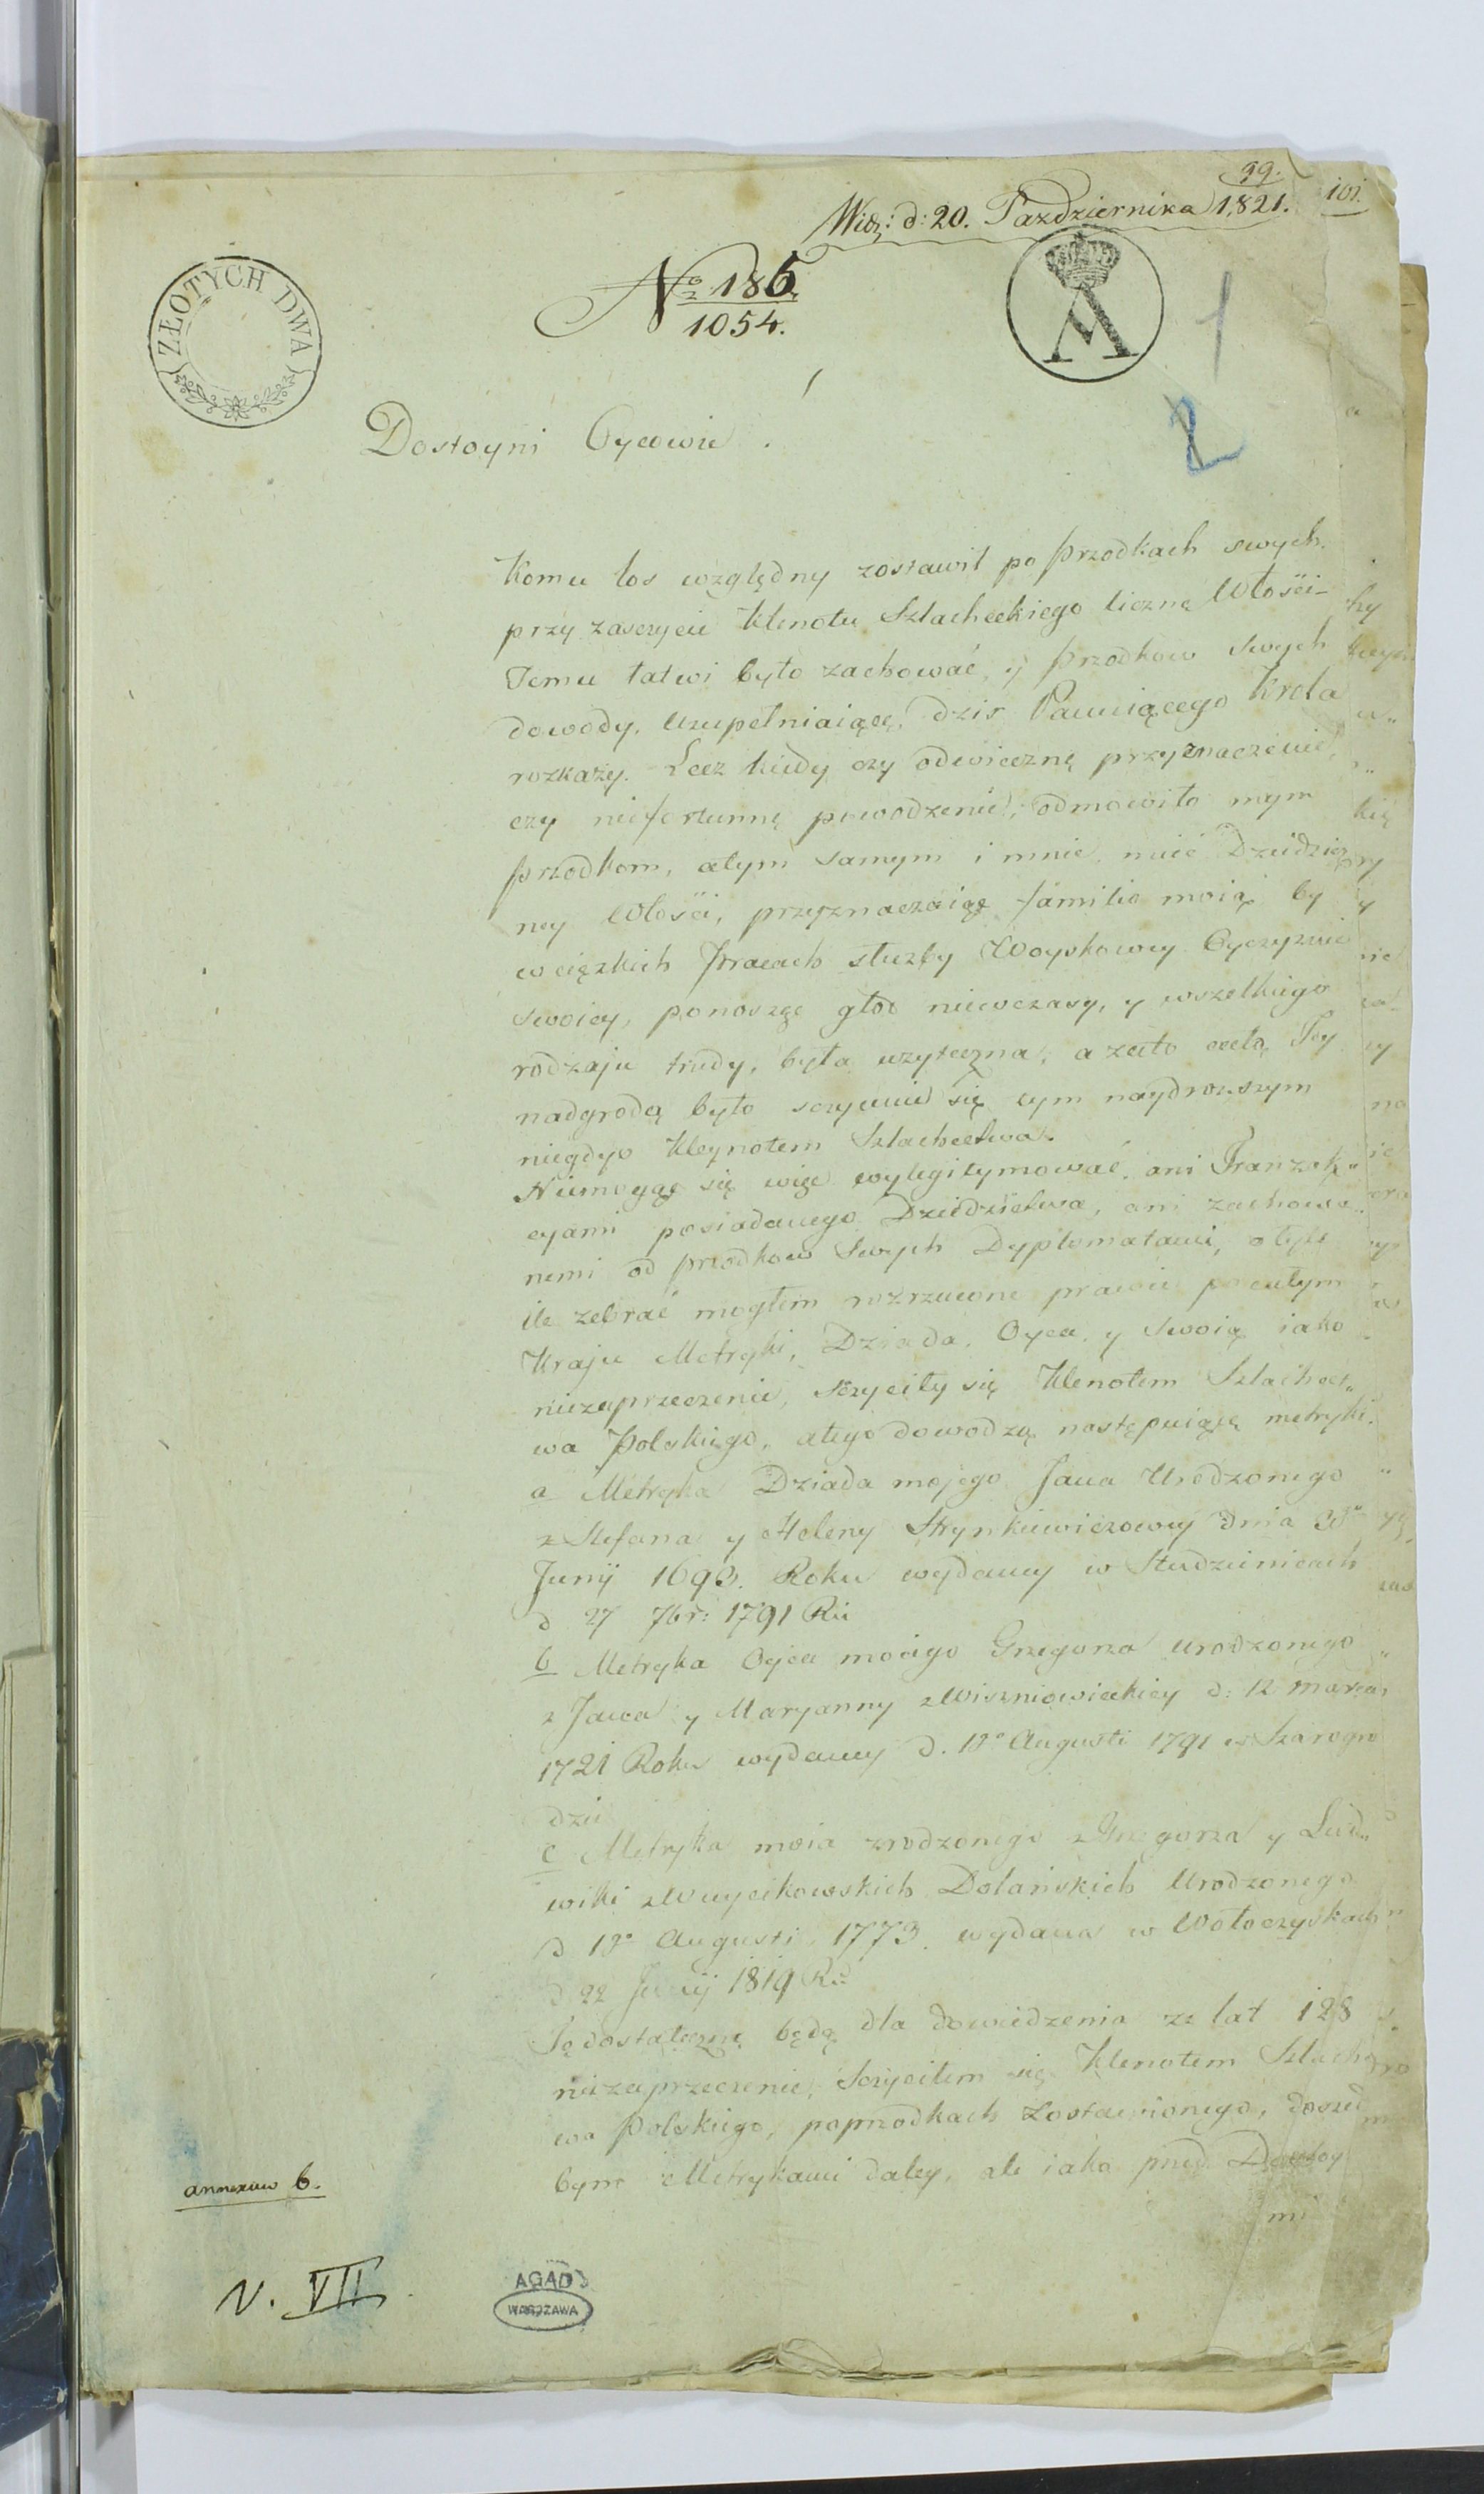 99.
Widz: d: 20. Października 1821.
101.
ZŁOTYCH DWA
No 186
1054.
A
1
2
Dostoyni Oycowie.
Komu los względny zostawił po przodkach swych
przy zaszczycie Klenotu Szlacheckiego liczne Włości
Temu łatwi było zachować, y przodkow swych
dowody, uzupełniaiące, dziś Panuiącego Krola
rozkazy. Lecz kiedy czy odwieczne przyznaczenie,
czy niefortunne powodzenie, odmowiło mym
przodkom, atym samym i mnie, mieć Dziedzicz
ney Włości, przyznaczaiąc familio moią by
w ciężkich pracach służby Woyskowey Oyczyznie
swoiey, ponosząc głod niewczasy, y wszelkiego
rodzaju trudy, była użyteczna, a zato całą Jey
nadgrodą było szczycenie się tym naydroższym
niegdyś Kleynotem Szlachectwa.
Niemogąc się więc wylegitymować, ani Tranzak„
cyami posiadanego Dziedzictwa, ani zachowa„
nemi od przodkow swych Dyplomatami, otyle
ile zebrać mogłem rozrzucone prawie po całym
Kraju Metryki, Dziada, Oyca, y Swoią iako
niezaprzeczenie, szczyciły się Klenotem Szlachect„
wa Polskiego, atego dowodzą następuiące metryki.
a Metryka Dziada mojego Jana Urodzonego
z Stefana y Heleny Hrynkiewiczowey dnia
Junij 1693. Roku wydany w Studzienicach
d 27 7br: 1791 Ru
b Metryka Oyca moiego Grzegorza urodzonego
z Jana y Maryanny z Wiszniowieckiey d: 12 Marca
1721 Roku wydaney d. 13o Augusti 1791 w Szarogro
dzie
c Metryka moia zrodzonego z Grzegorza y Lud„
wiki z Woyciechowskich Dolańskich Urodzonego
d 13o Augusti 1773. wydana w Wołoczyskach
d 22 Junij 1819 Ru
Są dostateczne będą dla dowiedzenia ze lat 128
niezaprzeczenie, szczyciłem się Klenotem Szlachect
wa Polskiego, poprzodkach zostawionego, doszed
bym Metrykami daley, ale iako przed Dostoy
mi
annexum 6.
N. VII
AGAD
WARSZAWA